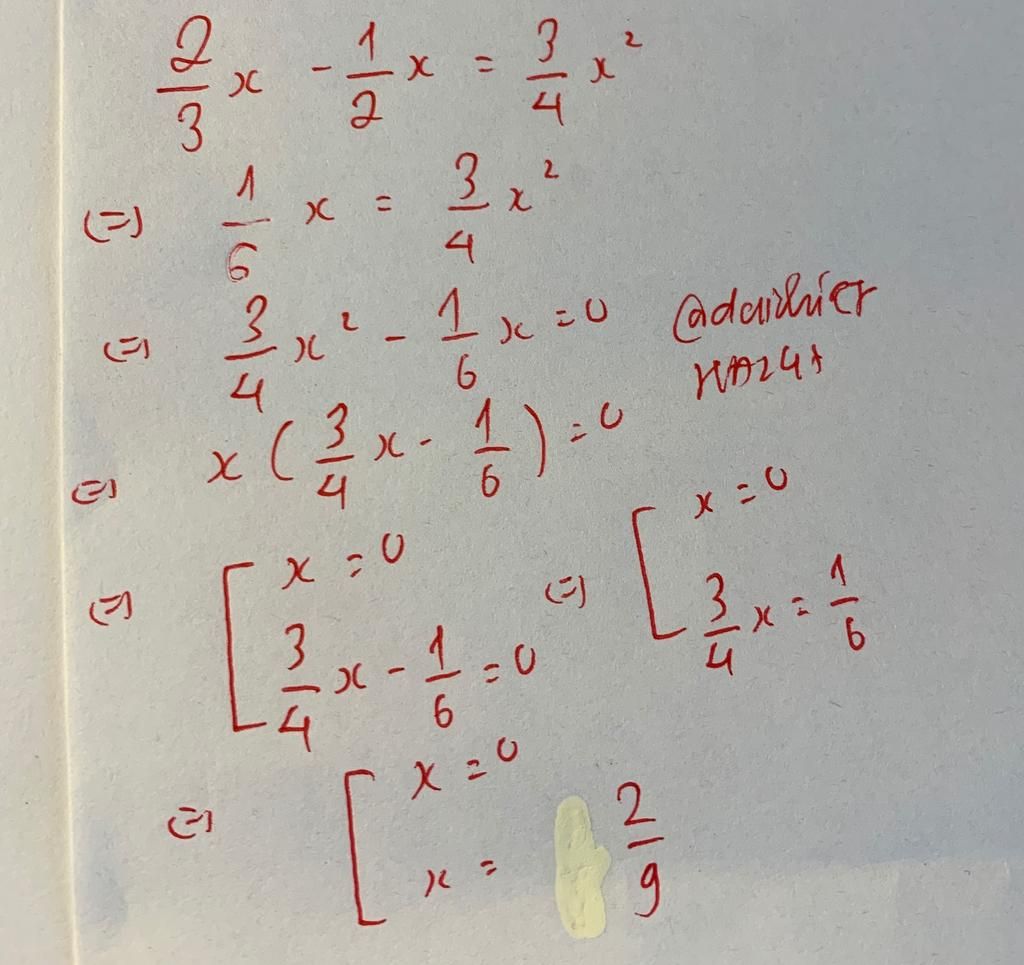 2/3 x - 1/2 x = 3/4 x²
(=) 1/6 x = 3/4 x²
(=) 3/4 x² - 1/6 x = 0
(=) x ( 3/4 x - 1/6 ) = 0
(=) [ x = 0
3/4 x - 1/6 = 0
(=) [ x = 0
3/4 x = 1/6
(=) [ x = 0
x = 2/9